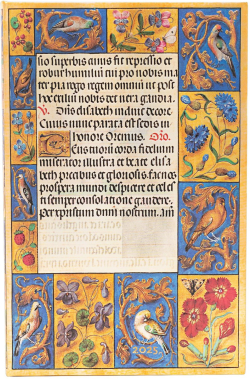 sio superbis eius fit repressio et
robur humili cui pio nobis ma
ter pia rego regem omniū ut post
hec exiliū nobis det vera gaudia
V. elisabeth mundi decor.
Cuius nunc parata est sedis in
honore Oremus. Oro.
Tuorum corda fidelium
miserator illustra et beate elisa
beth precibus et gloriosis fac nos
prospera mundi despicere et celes
ti semper consolatione gaudere.
per xpristum dnm nostrum. am
2025